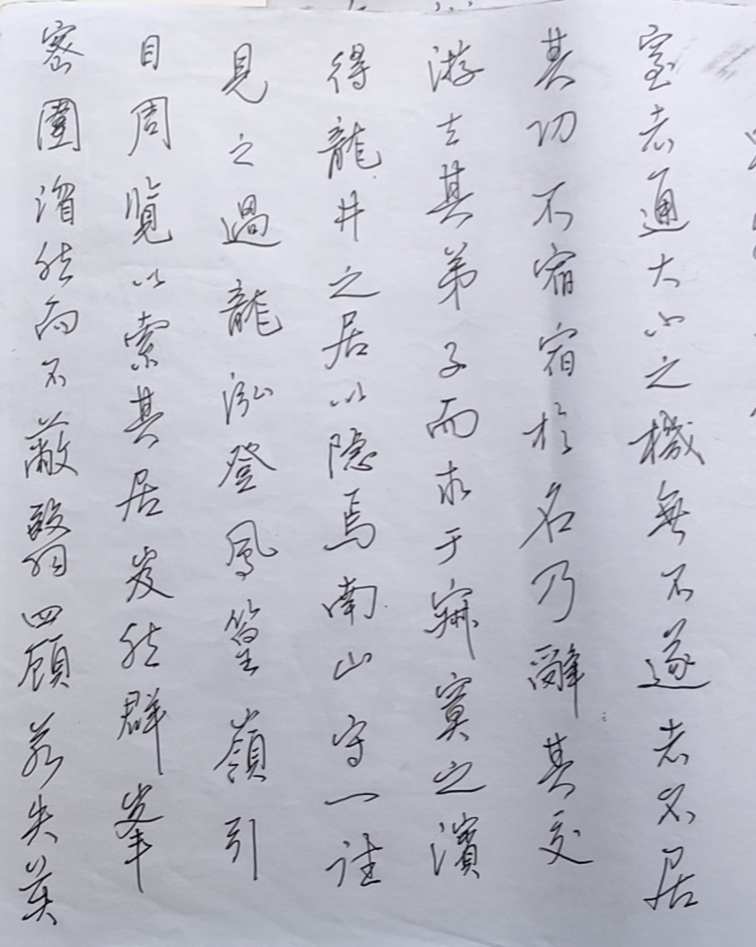 室者通大小之機無不遂者不居
其功不宿宿於名乃辭其交
游去其弟子而求于寂寞之濱
得龍井之居以隐焉南山守一往
見之過龍泓登風篁嶺引
目周覧以索其居岌然群峯
密圍然而不蔽翳四顾若失莫